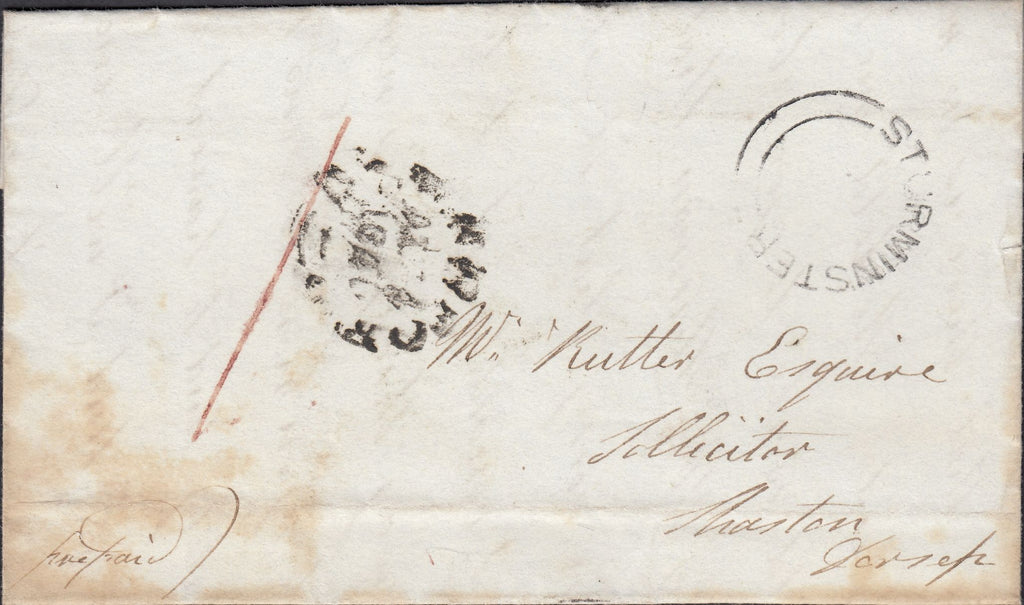 STURMINSTER
Mr. Rutter Esquire
Sollicitor
Shaston
Dorset
prepaid